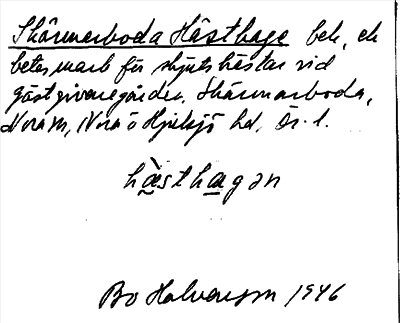 Skärmarboda Hästhage beh. ek
betesmark för skjutshästar vid
gästgivaregården. Skärmarboda,
Nora ls, Nora o Hjulsjö hd, Ör. l.
hæ̀sthagən
Bo Halvarson 1946